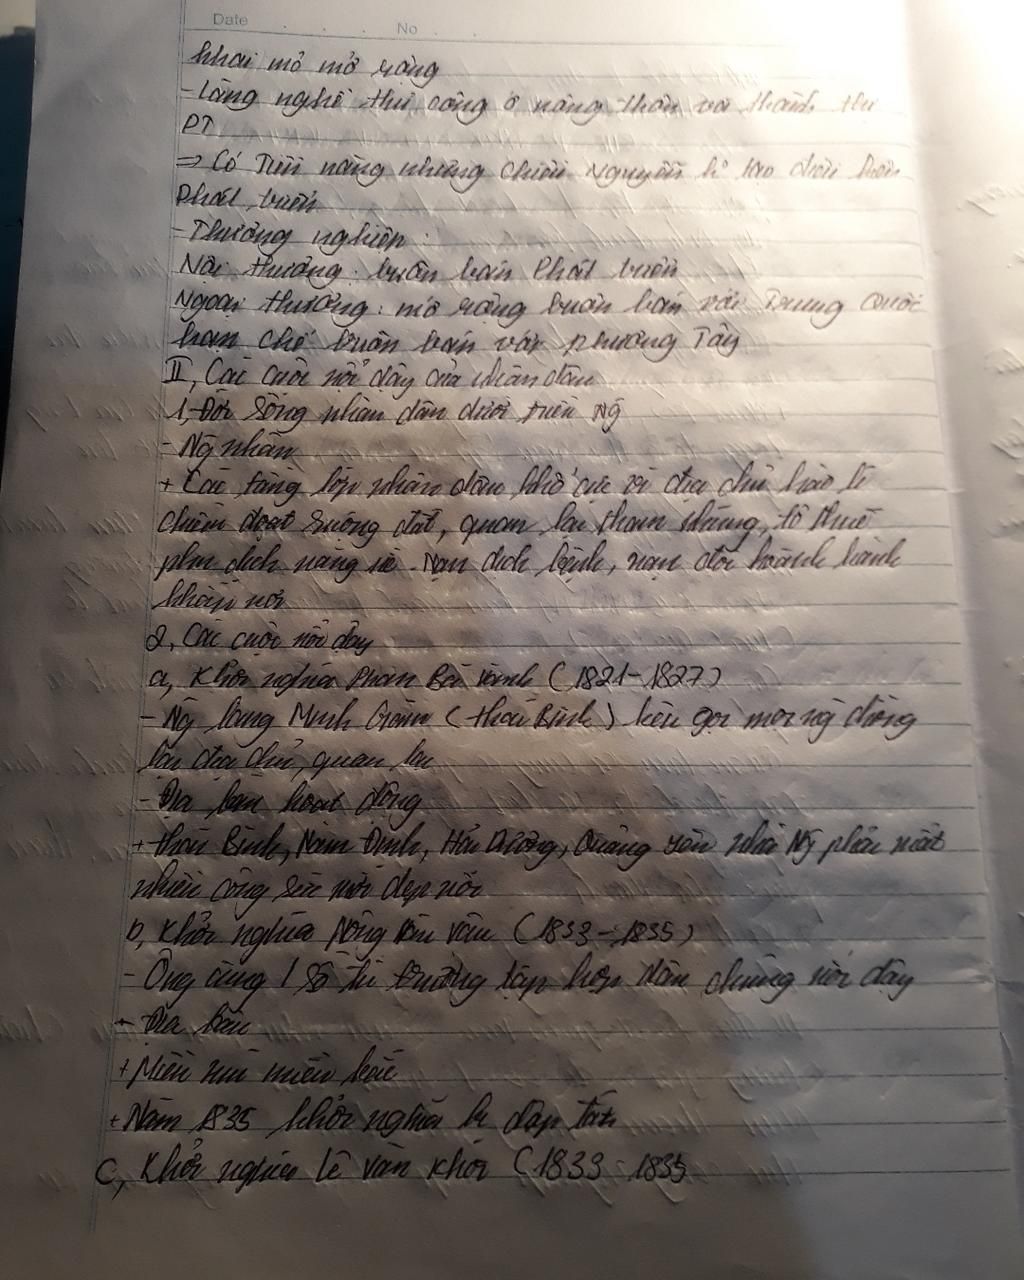 Date No
khai mỏ mở rộng
- Làng nghề thủ công ở nông thôn và thành thị
PT
=> Có tiềm năng nhưng Nguyễn k tạo điều kiện
Phát triển
- Thương nghiệp:
Nội thương: buôn bán Phát triển
Ngoại thương: mở rộng buôn bán với Trung Quốc
hạn chế buôn bán với phương Tây
II, Các cuộc nổi dậy của nhân dân
1, Đời sống nhân dân dưới triều Ng
- Ng nhân
+ Các tầng lớp nhân dân khổ cực vì địa chủ hào lí
chiếm đoạt ruộng đất, quan lại tham nhũng, tô thuế
phu dịch nặng nề. Nạn dịch bệnh, nạn đói hoành hành
khắp nơi
2, Các cuộc nổi dậy
a, Khởi nghĩa Phan Bá Vành (1821-1827)
- Ng làng Minh Giám (Thái Bình) kêu gọi mọi ng chống
lại địa chủ, quan lại
- Địa bàn hoạt động
+ Thái Bình, Nam Định, Hải Dương, Quảng Yên nhà Ng phải mất
nhiều công sức mới dẹp nổi
b, Khởi nghĩa Nông Văn Vân (1833-1835)
- Ông cùng 1 số tù trưởng tập hợp dân chúng nổi dậy
- Địa bàn
+ Miền núi miền bắc
+ Năm 1835 khởi nghĩa bị dập tắt
C, Khởi nghĩa Lê Văn Khôi (1833-1835